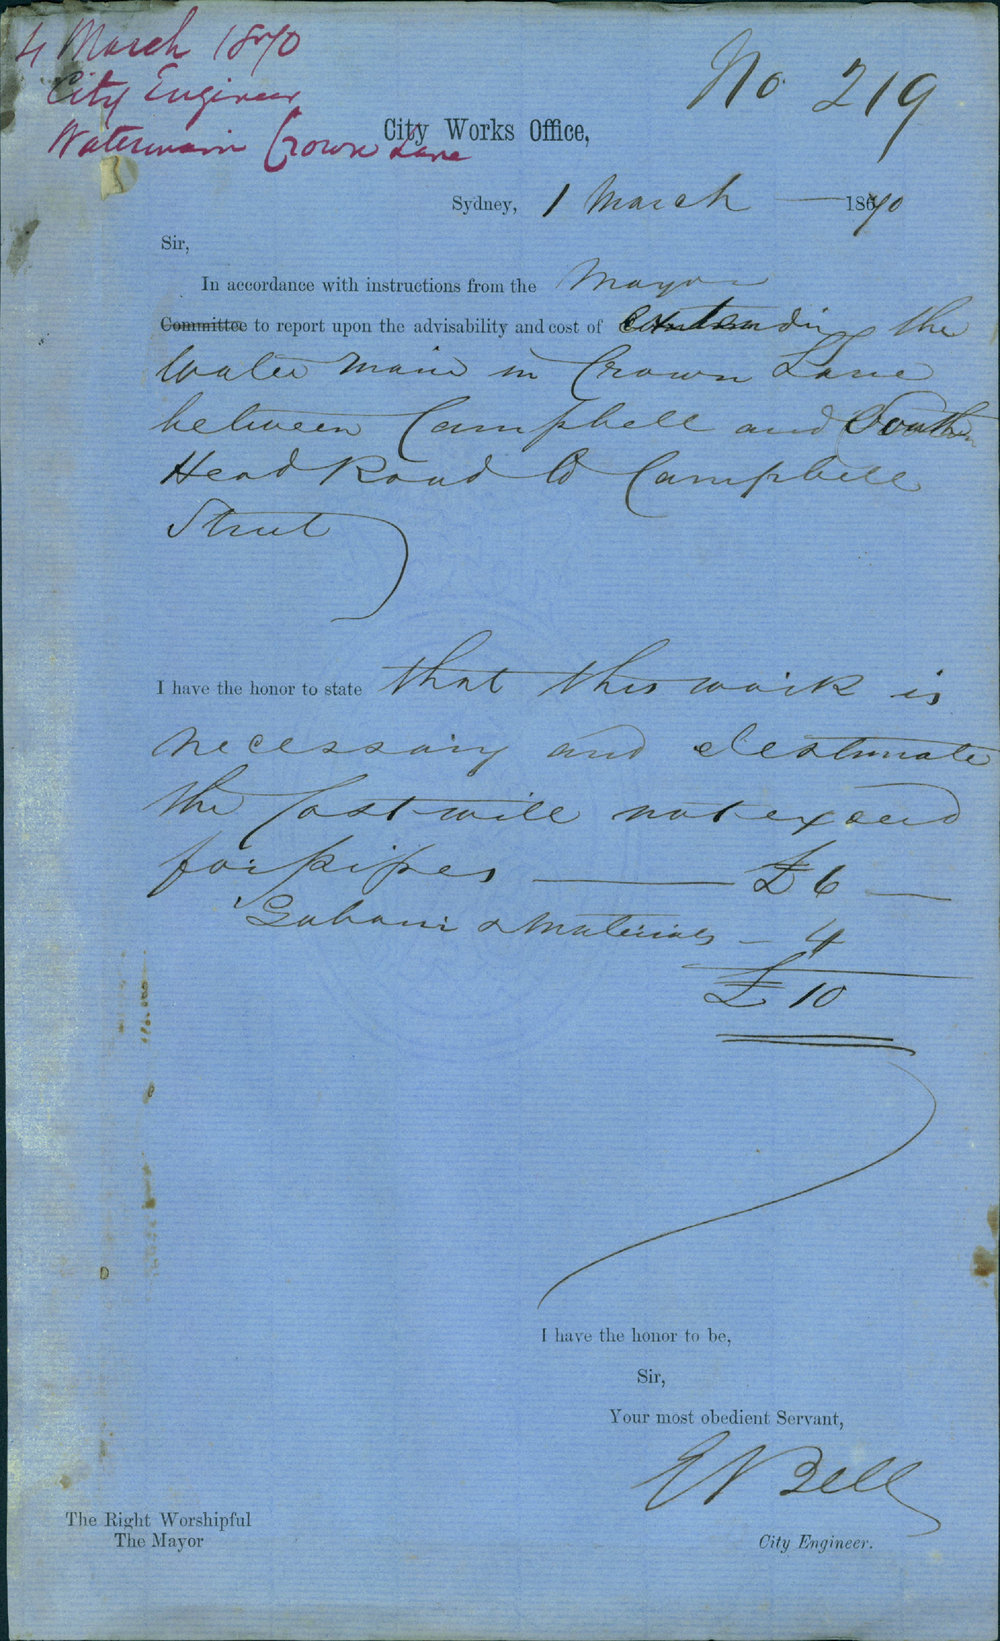 4 March 1870
City Engineer
Watermain Crown Lane
No 219
City Works Office,
Sydney, 1 March 1870
Sir,
In accordance with instructions from the Mayor
Committee to report upon the advisability and cost of extending the
Water Main in Crown Lane
between Campbell and South
Head Road to Campbell
Street
I have the honor to state that this work is
necessary and I estimate
the Cost will not exceed
for pipes — £6 —
Labour & Materials — 4
£10
I have the honor to be,
Sir,
Your most obedient Servant,
E Bell
The Right Worshipful
The Mayor
City Engineer.